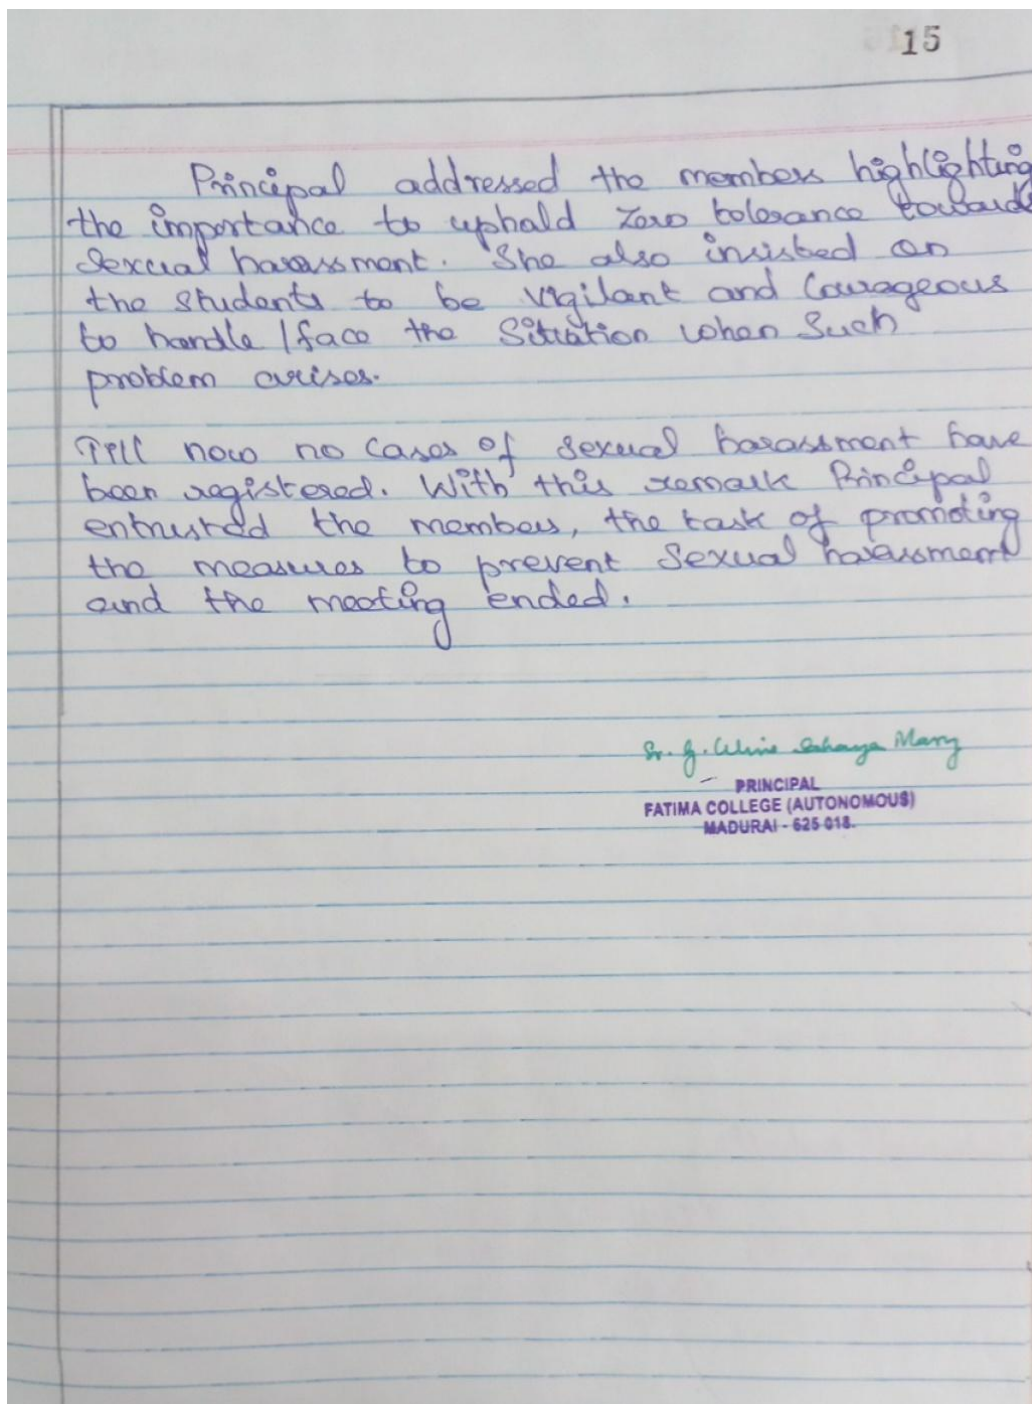 15
Principal addressed the members highlighting
the importance to uphald zero tolerance towards
sexual harassment. She also insisted on
the students to be vigilant and Courageous
to handle / face the Situation when Such
problem arises.
Till now no cases of sexual harassment have
been registered. With this remark Principal
entrusted the members, the task of promoting
the measures to prevent sexual harassment
and the meeting ended.
Sr. G. Celine Sahaya Mary
PRINCIPAL
FATIMA COLLEGE (AUTONOMOUS)
MADURAI - 625 018.